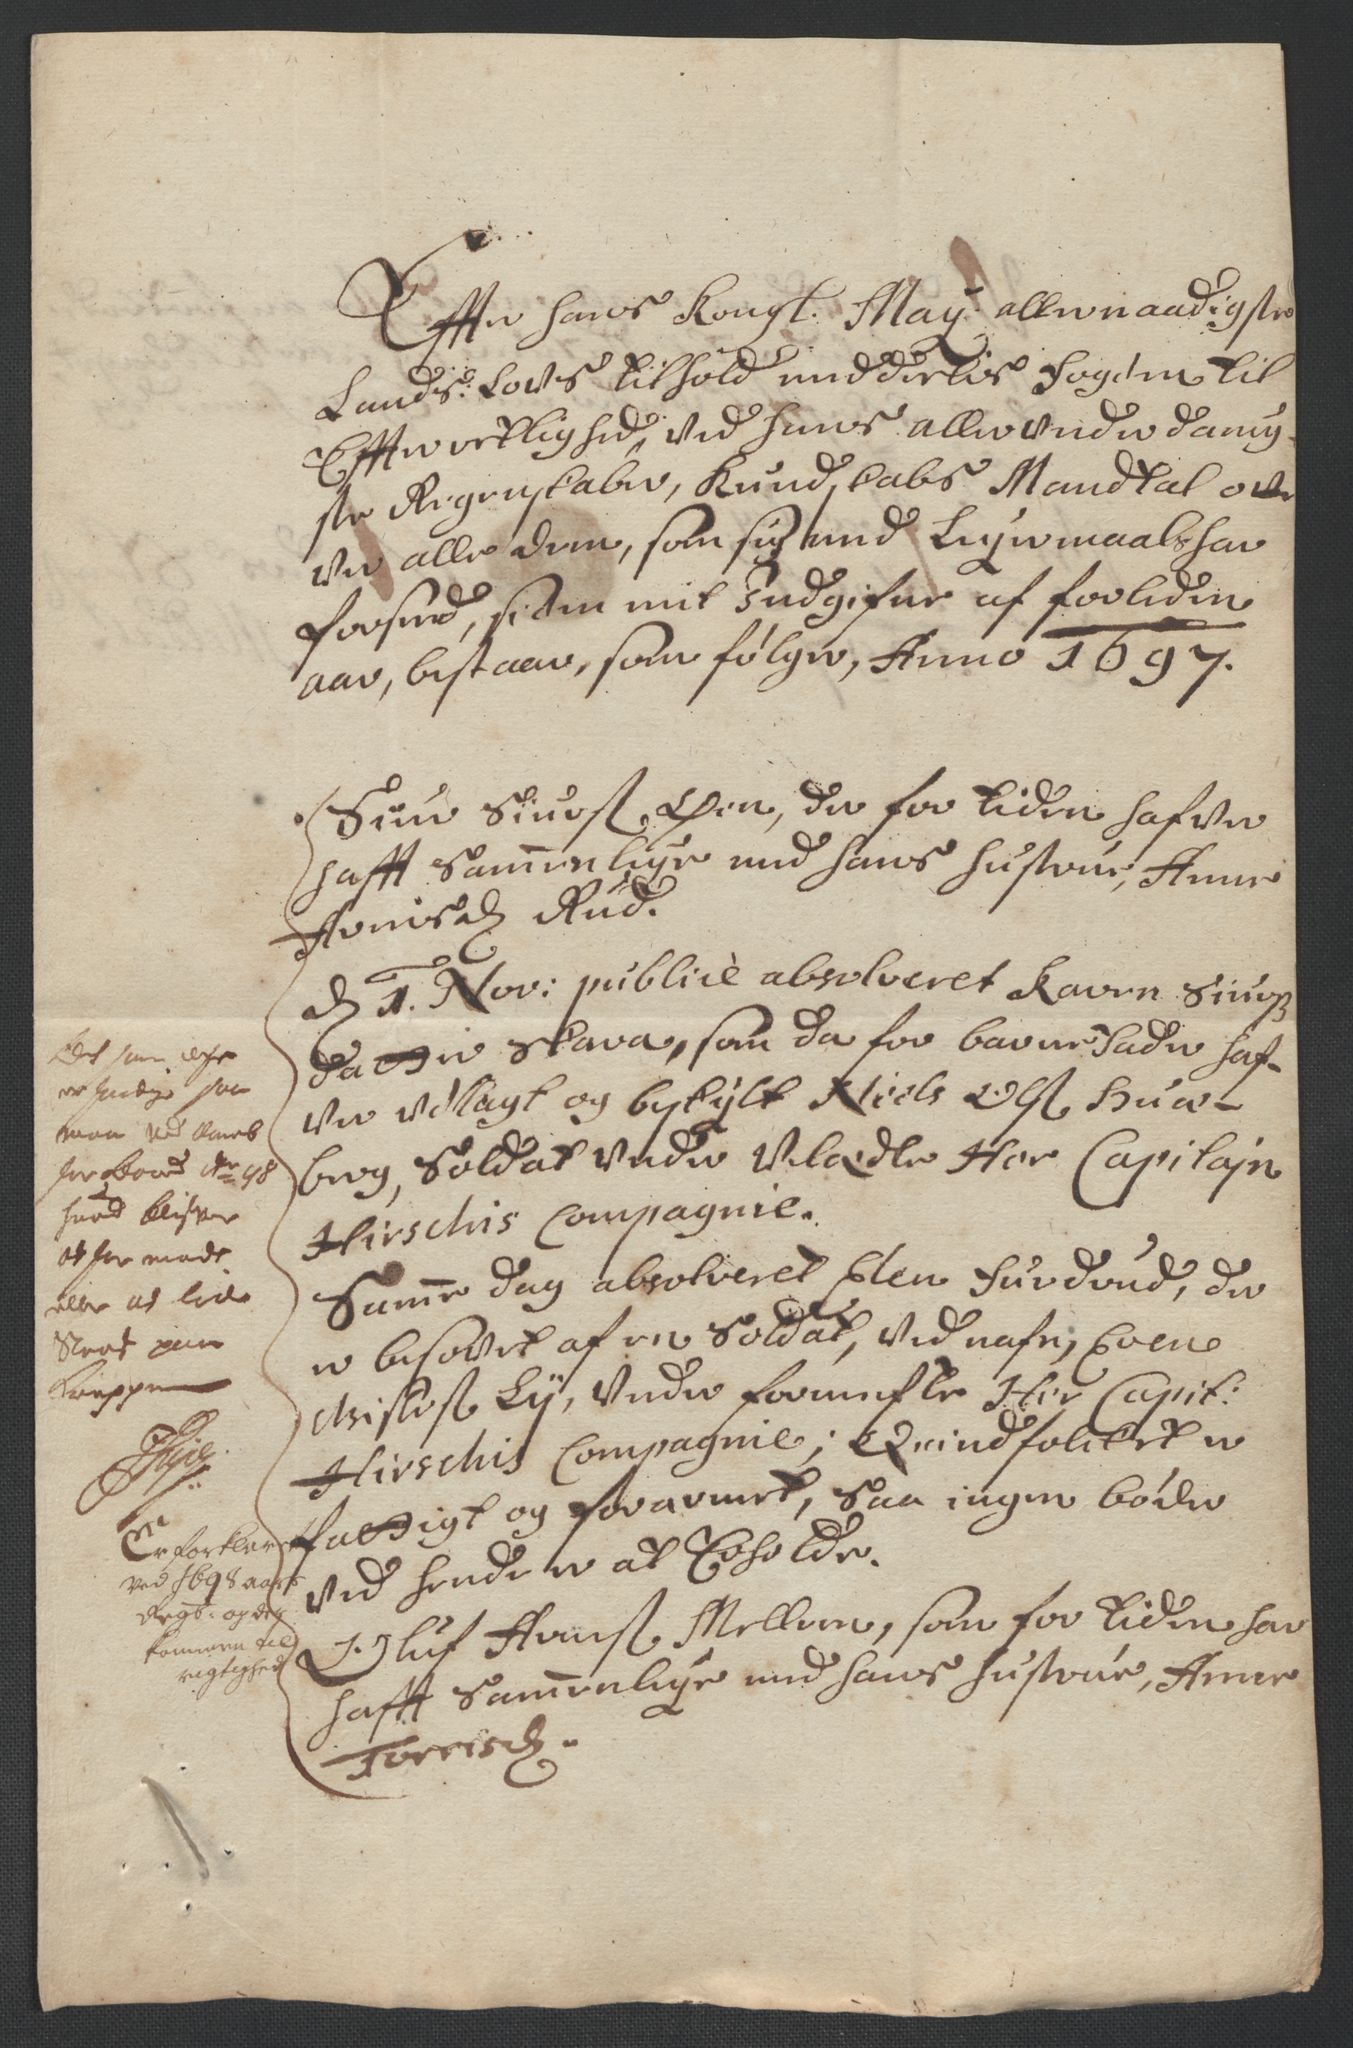 Effter hans Kongl. May: allernaadigste
Lands: Lovs tilhold meddeelis Fogden til
Effterretlighed, ved hans allerunderdanig-
ste Regenskaber, Kundskabs Mandtal over
alle dem, som sig med Leyermaal har
forseed, siden mit Indgifne af forleden
aar, bestaar, som følger, Anno 1697.
Siur Siurs. Øen, der for tiden hafver
hafft Sammenleye med hans hustrue, Anne
Arnisd. Rud.
d. 1. Nov: publicè absolveret Karen Siurs
datter Skara, som da for barnefader haf-
ver udlagt og beskylt Niels Ols. Huus-
berg, Soldat under Velædle Her Capitajn
Hirschis Compagnie.
Samme dag absolveret Elen Furdrud, der
er besovet af en Soldat, ved nafn, Even
Christens. Ly, under formeldte Her Capit:
Hirschis Compagnie; Qvindfolcket er
fattigt og forarmet, saa ingen bøder
ved hende er at Erholde.
Oluf Arnes. Mellem, som for tiden har
hafft Sammenleye med hans hustrue, Anne
Torrisd.
hved blifver
at
eller at lide
Straf paa
Kroppen
Er forklaret
ved 1698 aars
Regsk: og der
kommen til
rigtighed